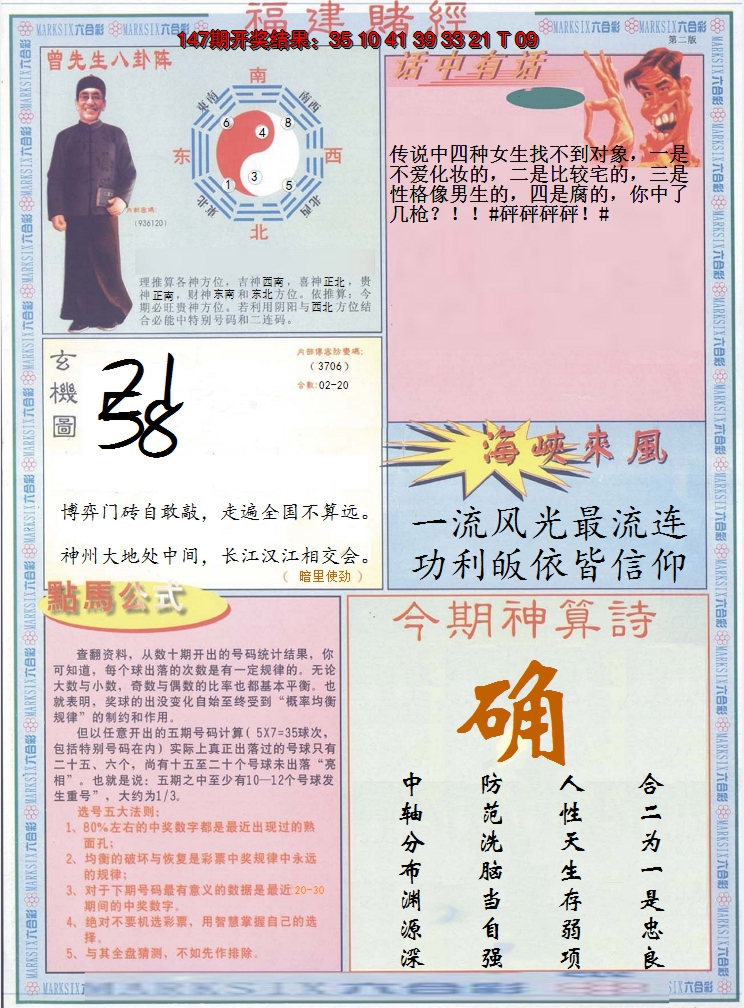 福建賭經
147期开奖结果：35 10 41 39 33 21 T 09
MARKSIX六合彩 MARKSIX六合彩 MARKSIX六合彩 MARKSIX六合彩
第二版
曾先生八卦阵
南
东南
南西
6
8
4
东
西
3
1
5
东北
北西
北
内部密碼：
(936120)
理推算各神方位，吉神西南，喜神正北，贵
神正南，财神东南和东北方位。依推算：今
期必旺贵神方位。若利用阴阳与西北方位结
合必能中特别号码和二连码。
话中有话
传说中四种女生找不到对象，一是
不爱化妆的，二是比较宅的，三是
性格像男生的，四是腐的，你中了
几枪？！！#砰砰砰砰！#
玄機圖
21
58
(3706)
合数:02-20
博弈门砖自敢敲，走遍全国不算远。
神州大地处中间，长江汉江相交会。
（ 暗里使劲 ）
海峡來風
一流风光最流连
功利皈依皆信仰
點馬公式
查翻资料，从数十期开出的号码统计结果，你
可知道，每个球出落的次数是有一定规律的。无论
大数与小数，奇数与偶数的比率也都基本平衡。也
就表明，奖球的出没变化自始至终受到“概率均衡
规律”的制约和作用。
但以任意开出的五期号码计算( 5X7=35球次，
包括特别号码在内) 实际上真正出落过的号球只有
二十五、六个，尚有十五至二十个号球未出落“亮
相”。也就是说：五期之中至少有10—12个号球发
生重号”，大约为1/3。
选号五大法则：
1、80%左右的中奖数字都是最近出现过的熟
面孔；
2、均衡的破坏与恢复是彩票中奖规律中永远
的规律；
3、对于下期号码最有意义的数据是最近20-30
期间的中奖数字。
4、绝对不要机选彩票，用智慧掌握自己的选
择。
5、与其全盘猜测，不如先作排除。
今期神算詩
确
中轴分布渊源深
防范洗脑当自强
人性天生存弱项
合二为一是忠良